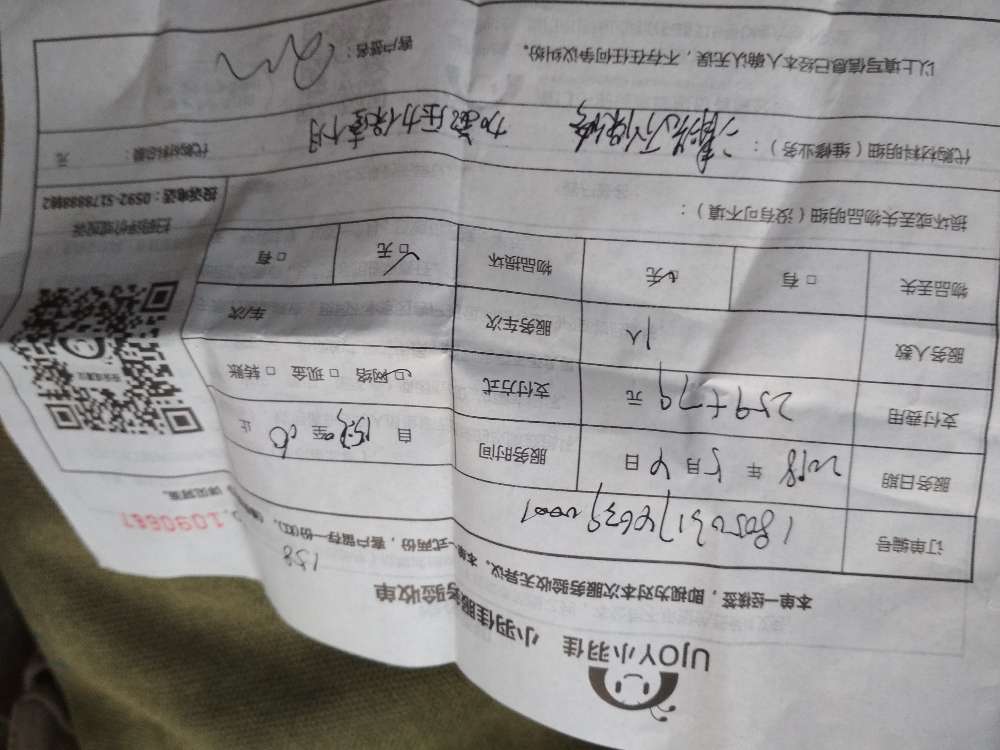 UJOY小羽佳 小羽佳服务验收单
138
本单一经填签，即视为对本次服务验收无异议。本单一式两份，客户留存一份
.1090687
订单编号
服务日期 2018 年 5 月 4 日 服务时间 自 至 止
支付费用 259+79 元 支付方式 网络 □ 现金 □ 转账
服务人数 1人 服务车次 车次
物品丢失 □ 有 无 物品损坏 □ 无 □ 有
损坏或丢失物品明细（没有可不填）：
扫码评价或投诉
投诉电话：0592-5178888转2
代购材料明细（维修业务）： 清洗不保修 加氟压力保壹个月
代购材料总额： 元
以上填写信息已经本人确认无误，不存在任何争议纠纷。 客户签名：